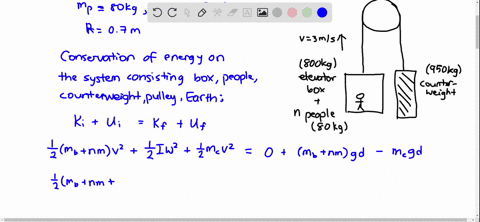 mp = 80kg,
R = 0.7 m
Conservation of energy on
the system consisting box, people,
counterweight, pulley, Earth:
Ki + Ui = Kf + Uf
1/2 (mb + nm) v² + 1/2 Iω² + 1/2 mc v² = 0 + (mb + nm) gd - mc gd
1/2 (mb + nm +
v = 3 m/s ↑
(800kg)
elevator
box
+
n people
(80kg)
(950kg)
counter-
weight